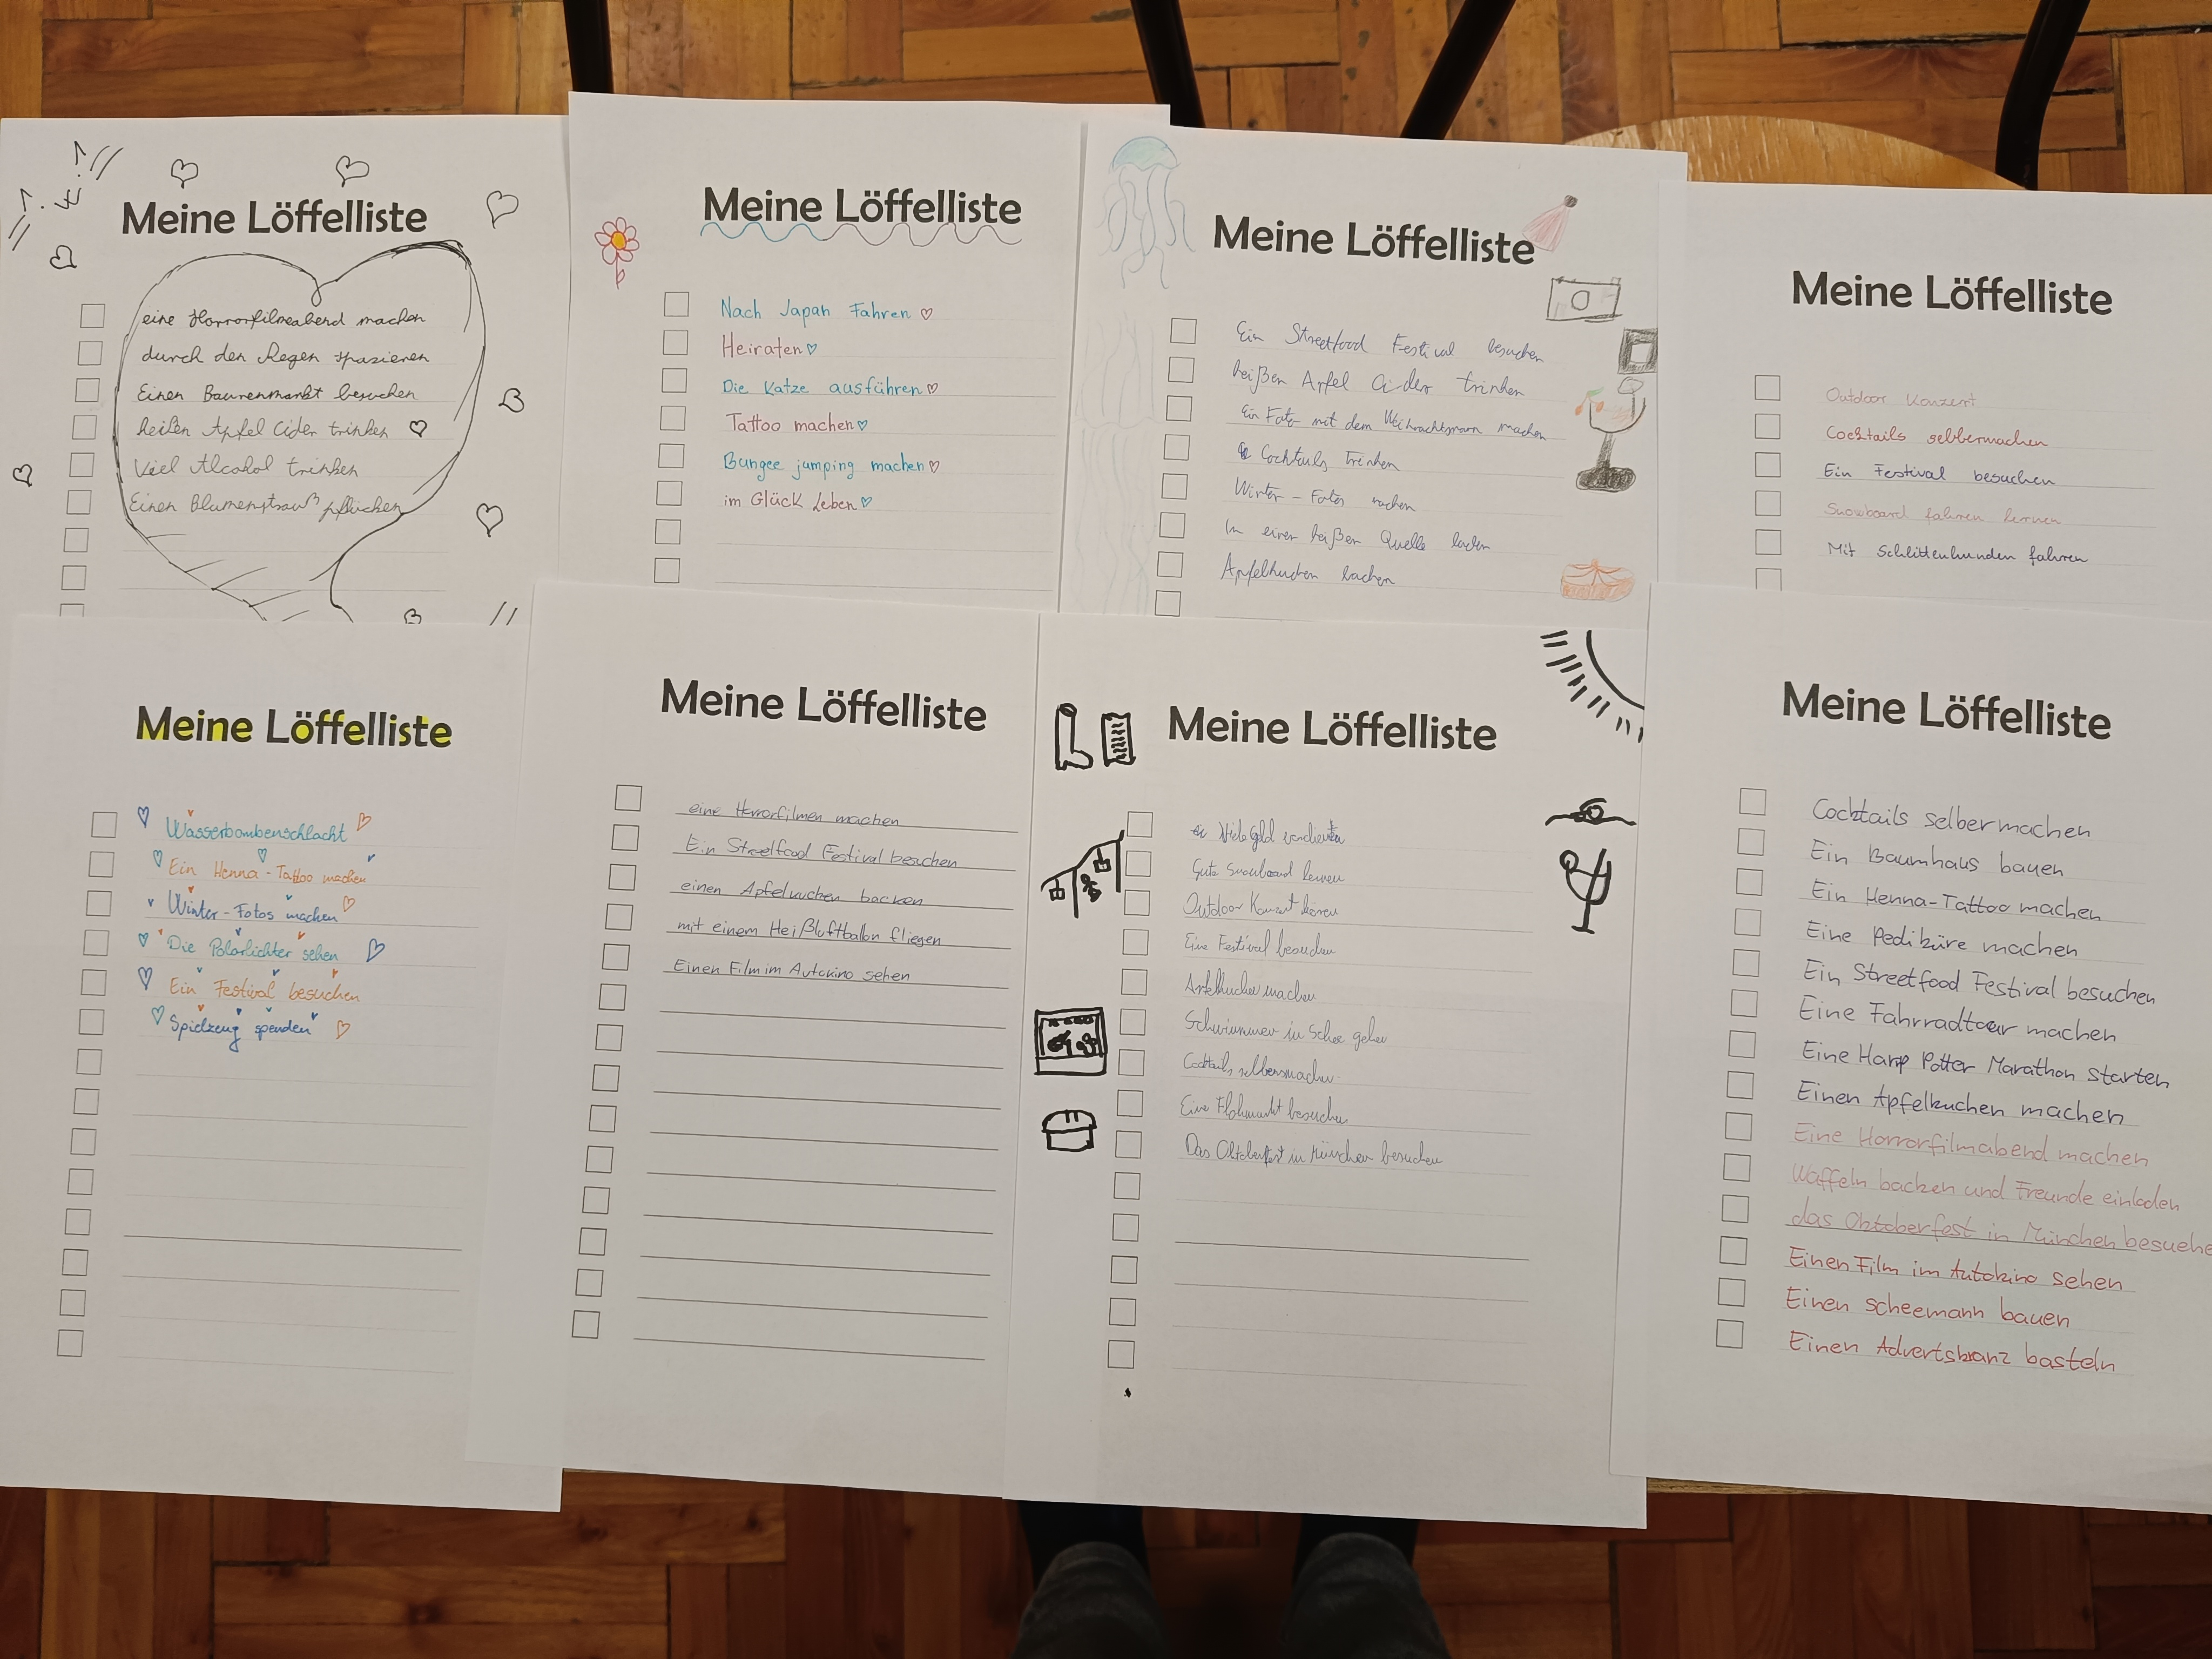 Meine Löffelliste
eine Horrorfilmeabend machen
durch den Regen spazieren
Einen Baurenmarkt besuchen
heißen Apfel Cider trinken
Viel Alcohol trinken
Einen Blumenstrauß pflücken
Meine Löffelliste
Nach Japan Fahren
Heiraten
Die Katze ausführen
Tattoo machen
Bungee jumping machen
im Glück Leben
Meine Löffelliste
Ein Streetfood Festival besuchen
heißen Apfel Cider trinken
Ein Foto mit dem Weihnachtsmann machen
Cocktails trinken
Winter - Fotos machen
In einer heißen Quelle baden
Apfelkuchen backen
Meine Löffelliste
Outdoor Konzert
Cocktails selbermachen
Ein Festival besuchen
Snowboard fahren lernen
Mit Schlittenhunden fahren
Meine Löffelliste
Wasserbombenschlacht
Ein Henna - Tattoo machen
Winter - Fotos machen
Die Polarlichter sehen
Ein Festival besuchen
Spielzeug spenden
Meine Löffelliste
eine Horrorfilmen machen
Ein Streetfood Festival besuchen
einen Apfelkuchen backen
mit einem Heißluftballon fliegen
Einen Film im Autokino sehen
Meine Löffelliste
Viele Geld
Gute Snowboard lernen
Outdoor Konzert hören
Eine Festival besuchen
machen
Schwimmen in gehen
Cocktails selbermachen
Eine Flohmarkt besuchen
Das Oktoberfest in München besuchen
Meine Löffelliste
Cocktails selber machen
Ein Baumhaus bauen
Ein Henna-Tattoo machen
Eine Pediküre machen
Ein Streetfood Festival besuchen
Eine Fahrradtour machen
Eine Harry Potter Marathon starten
Einen Apfelkuchen machen
Eine Horrorfilmabend machen
Waffeln backen und Freunde einladen
das Oktoberfest in München besuche
Einen Film im Autokino sehen
Einen Scheemann bauen
Einen Adventskranz basteln